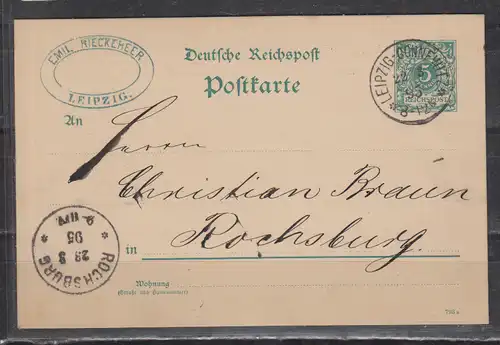 EMIL RIECKEHEER
LEIPZIG.
Deutsche Reichspost
Postkarte
LEIPZIG-GONNEWITZ
5
REICHSPOST
An
Herrn
Christian Braun
in Rochsburg.
ROCHSBURG
23 3
95
Wohnung
(Straße und Hausnummer)